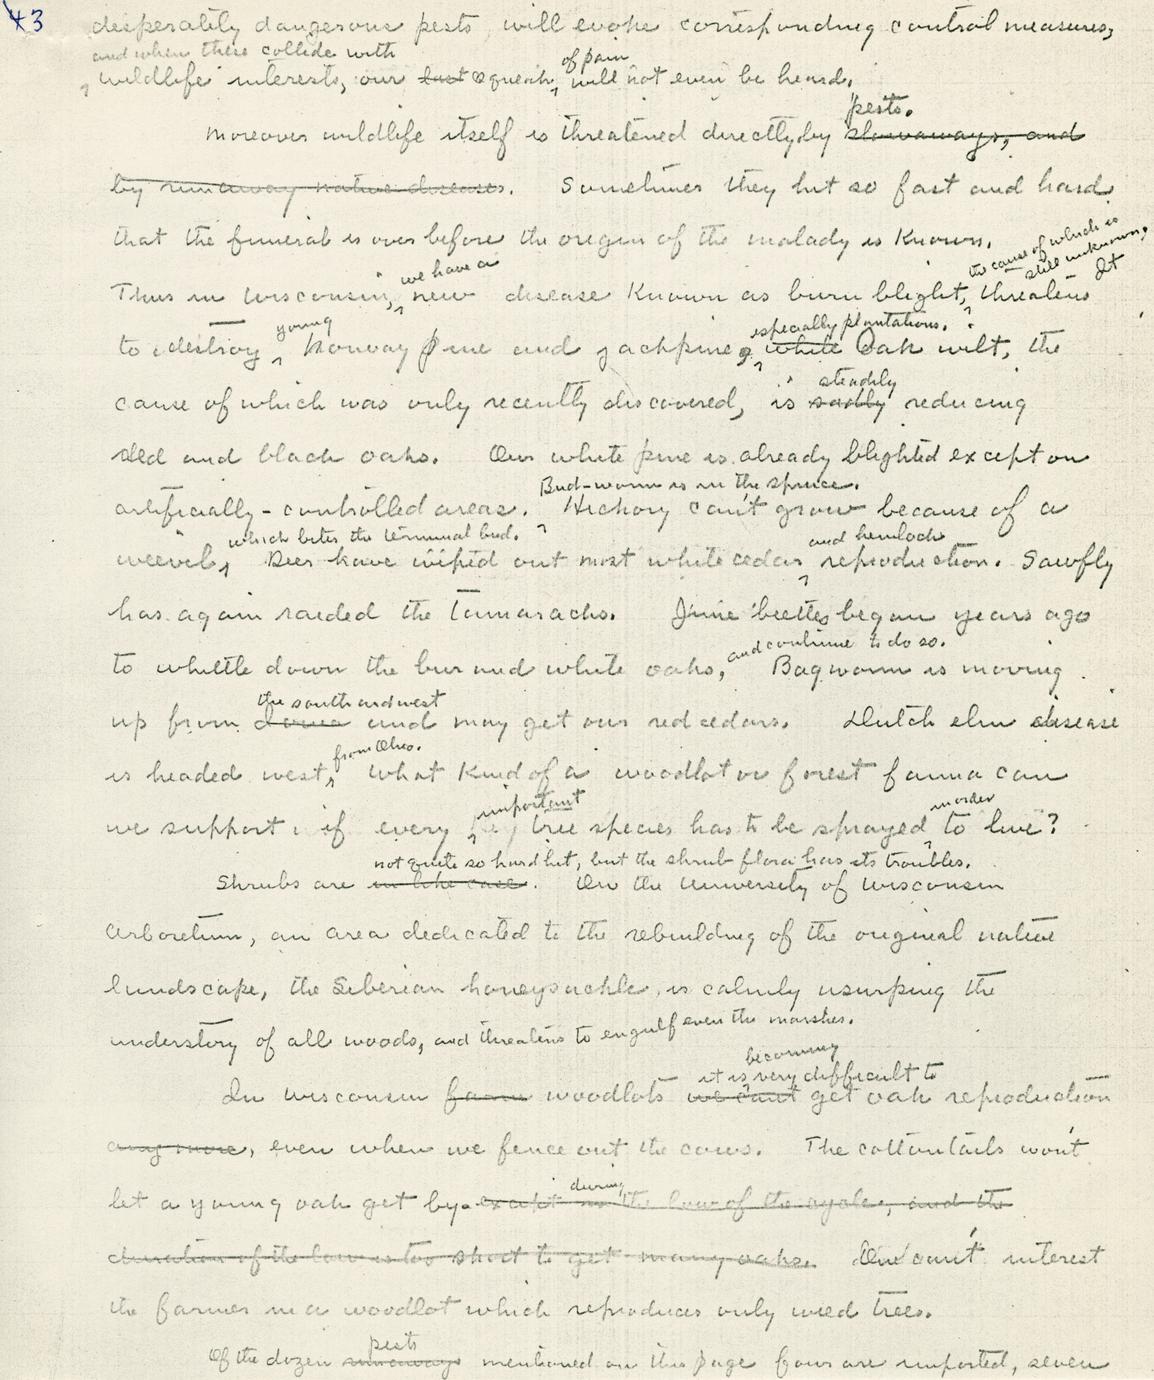 43
desperately dangerous pests will evoke corresponding control measures,
and when these collide with
wildlife interests, our last squeak of pain will not even be heard.
pests.
Moreover wildlife itself is threatened directly by stowaways, and
by runaway native diseases. Sometimes they hit so fast and hard
that the funeral is over before the origin of the malady is known.
the cause of which is
still unknown,
Thus in Wisconsin, we have a new disease known as burn blight, It threatens
young especially plantations.
to destroy Norway pine and jackpine, white Oak wilt, the
steadily
cause of which was only recently discovered, is sadly reducing
red and black oaks. Our white pine is already blighted except on
Bud-worm is in the spruce.
artificially-controlled areas. Hickory can't grow because of a
which bites the terminal bud. and hemlock
weevil, Deer have wiped out most white cedar reproduction. Sawfly
has again raided the tamaracks. June beetles began years ago
and continue to do so.
to whittle down the bur and white oaks, Bagworm is moving
the south and west
up from Iowa and may get our red cedars. Dutch elm disease
from Ohio.
is headed west, What kind of a woodlot or forest fauna can
important in order
we support if every tree species has to be sprayed to live?
not quite so hard hit, but the shrub flora has its troubles.
Shrubs are in like case. On the University of Wisconsin
Arboretum, an area dedicated to the rebuilding of the original native
landscape, the Siberian honeysuckle is calmly usurping the
understory of all woods, and threatens to engulf even the marshes.
becoming
it is very difficult to
In Wisconsin farm woodlots we can't get oak reproduction
any more, even when we fence out the cows. The cottontails won't
during
let a young oak get by. except in the low of the cycle, and the
duration of the low is too short to get many oaks. One can't interest
the farmer in a woodlot which reproduces only weed trees.
pests
Of the dozen runaways mentioned on this page four are imported, seven